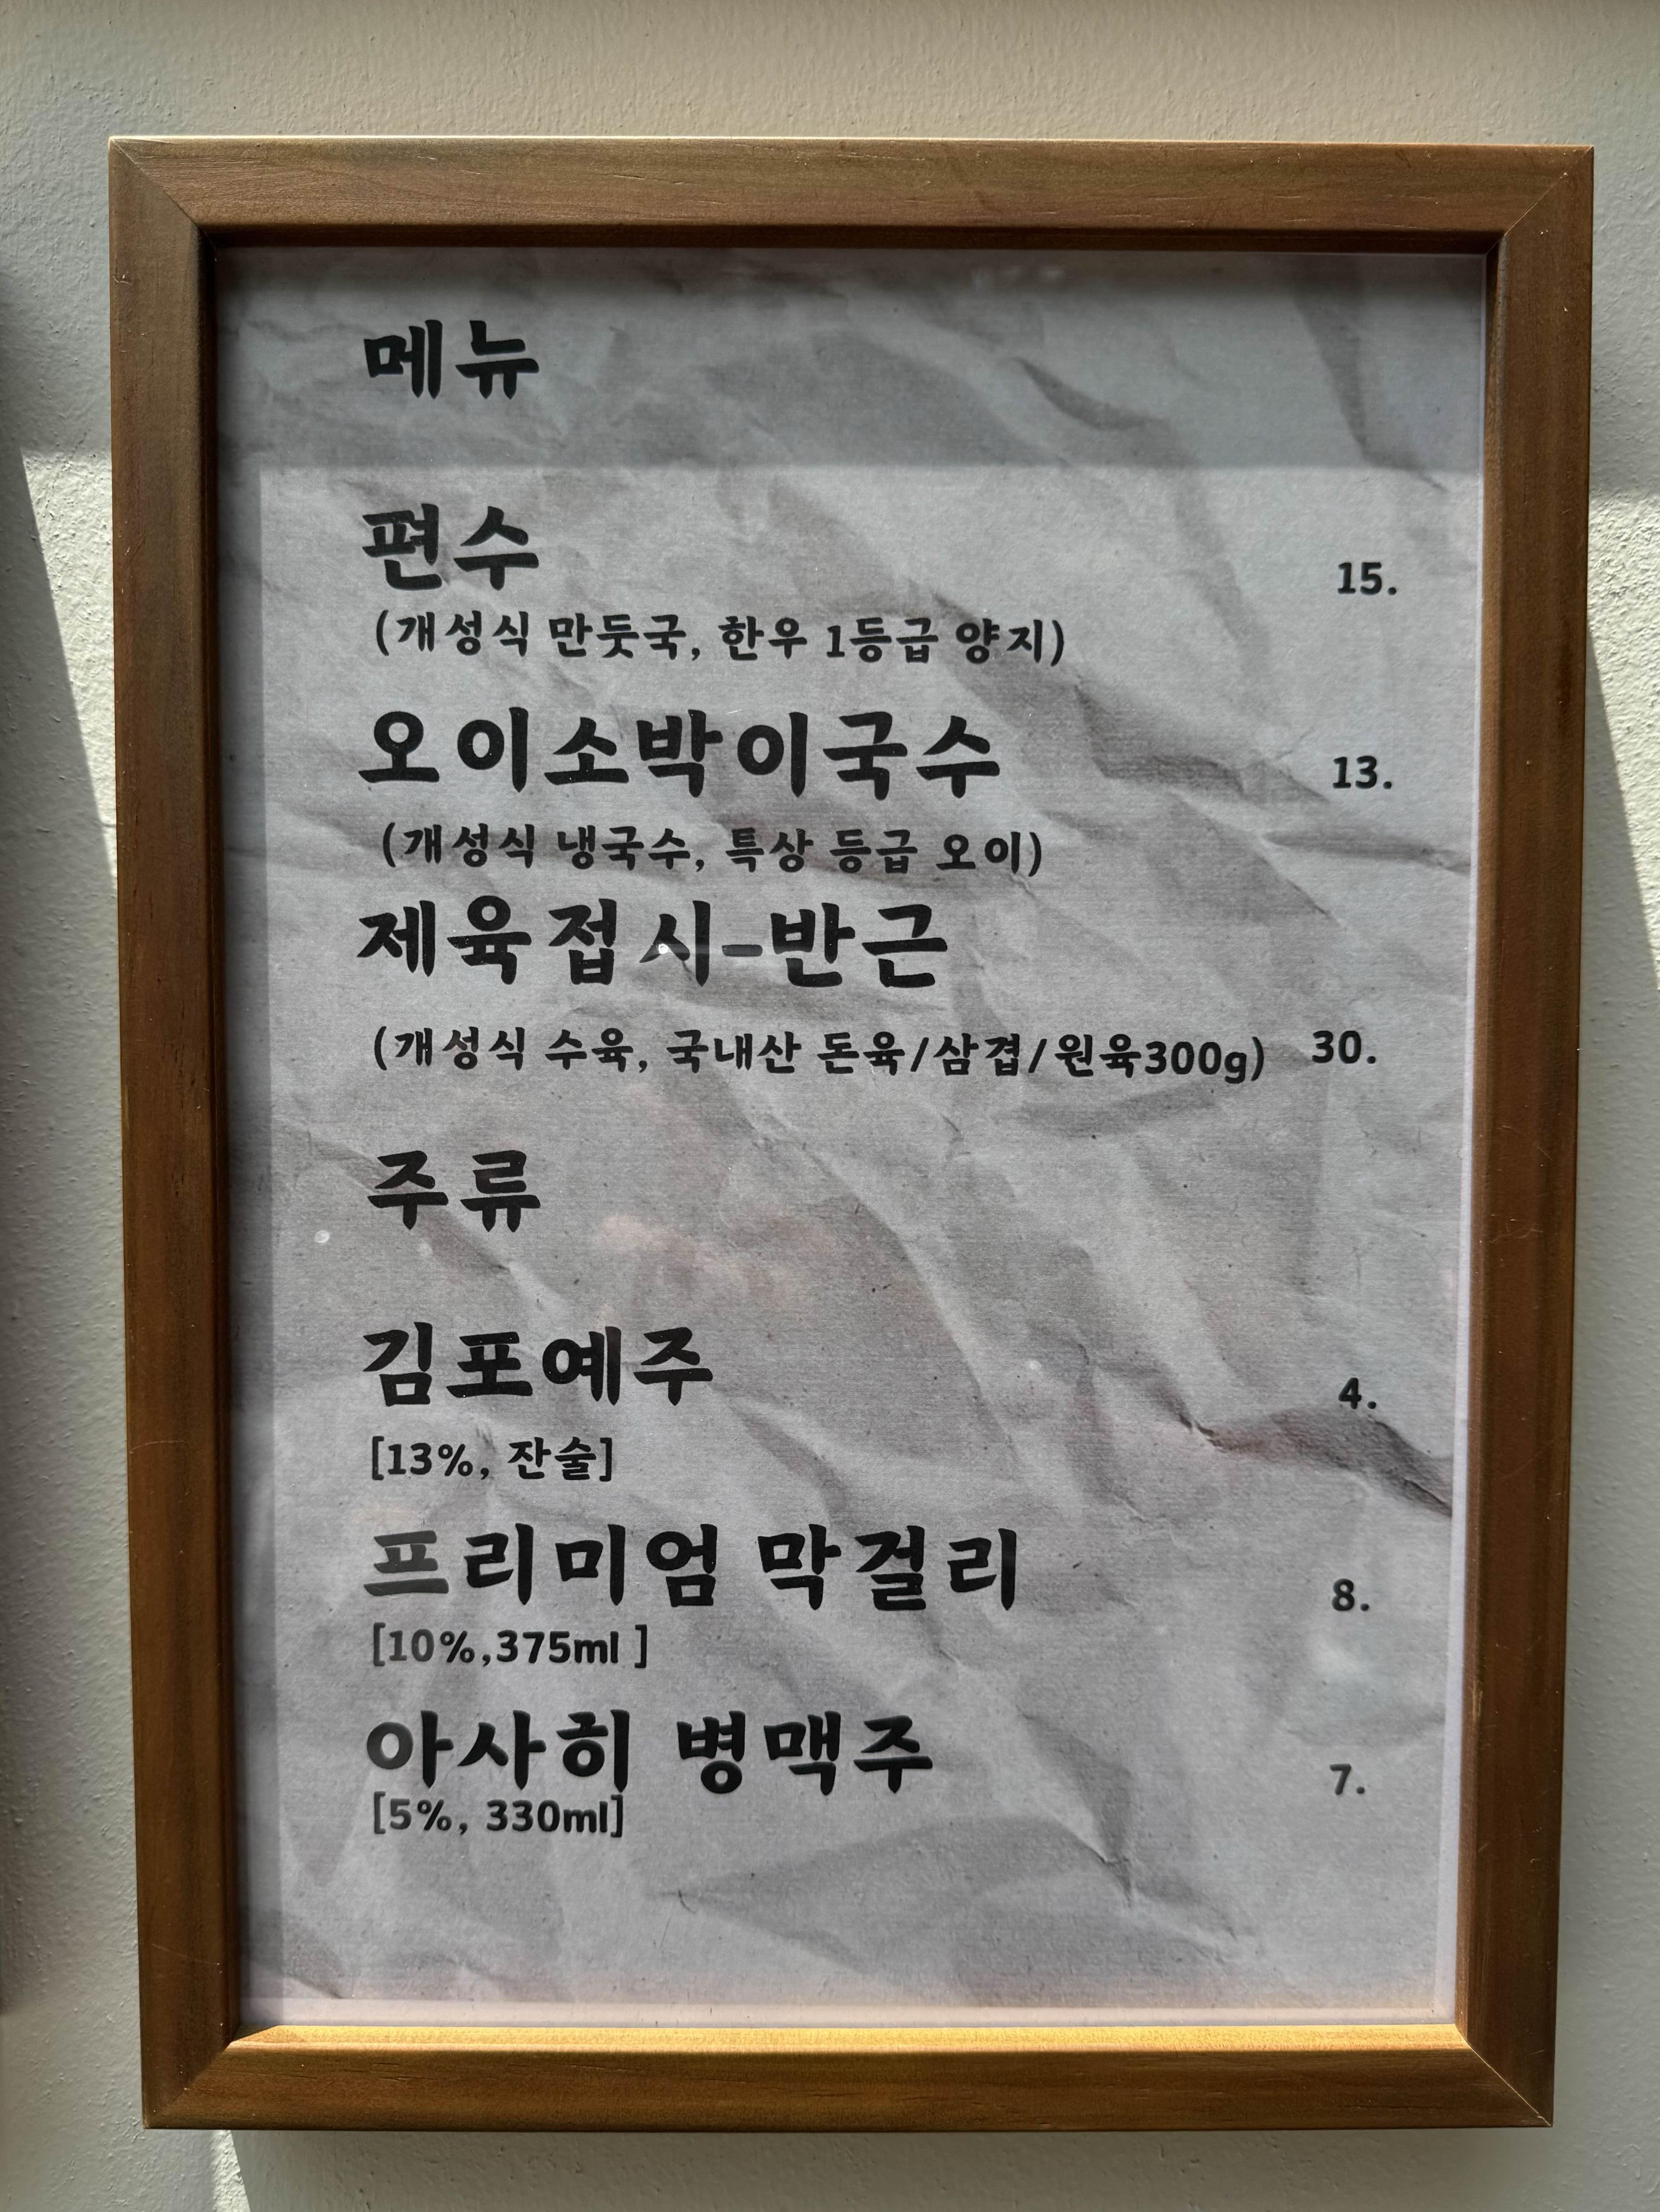 메뉴
편수 15.
(개성식 만둣국, 한우 1등급 양지)
오이소박이국수 13.
(개성식 냉국수, 특상 등급 오이)
제육접시-반근
(개성식 수육, 국내산 돈육/삼겹/원육300g) 30.
주류
김포예주 4.
[13%, 잔술]
프리미엄 막걸리 8.
[10%,375ml ]
아사히 병맥주 7.
[5%, 330ml]